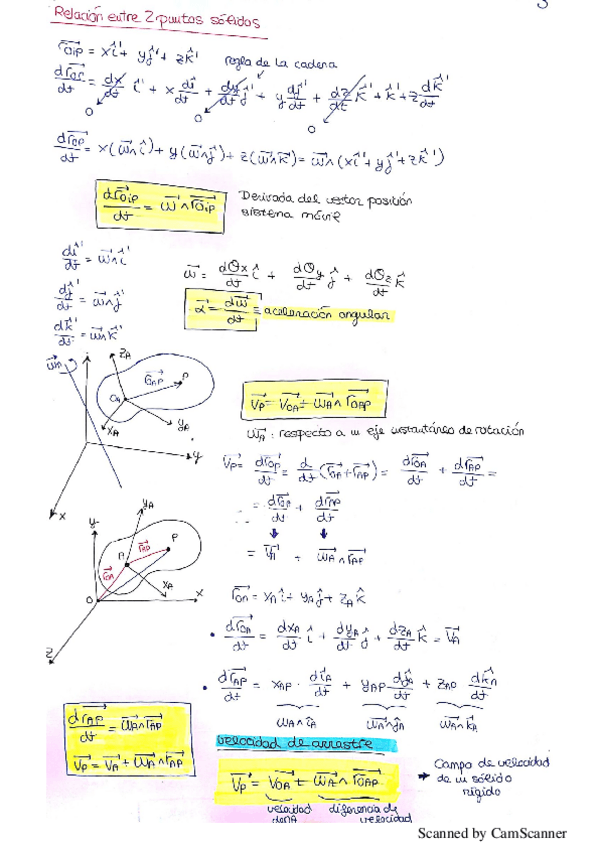 Relación entre 2 puntos sólidos
r⃗oip = xî' + yĵ' + zk̂'
regla de la cadena
dr⃗op/dt = dx/dt î' + x dî'/dt + dy/dt ĵ' + y dĵ'/dt + dz/dt k̂' + k̂' + z dk̂'/dt
0 0 0
dr⃗op/dt = x(ω⃗∧î') + y(ω⃗∧ĵ') + z(ω⃗∧k̂') = ω⃗∧(xî' + yĵ' + zk̂')
dr⃗oip/dt = ω⃗∧r⃗oip
Derivada del vector posición
sistema móvil
dî'/dt = ω⃗∧î'
dĵ'/dt = ω⃗∧ĵ'
dk̂'/dt = ω⃗∧k̂'
ω⃗ = dθx/dt î + dθy/dt ĵ + dθz/dt k̂
α⃗ = dω⃗/dt = aceleración angular
ω⃗A
zA
r⃗OAP
P
OA
xA
yA
y
x
V⃗P = V⃗OA + ω⃗A∧r⃗OAP
ω⃗A: respecto a un eje instantáneo de rotación
V⃗P = dr⃗OP/dt = d/dt (r⃗OA + r⃗AP) = dr⃗OA/dt + dr⃗AP/dt =
= dr⃗OA/dt + dr⃗AP/dt
= V⃗A + ω⃗A∧r⃗AP
y
yA
A
r⃗AP
P
r⃗OA
xA
O
x
z
r⃗OA = xA î + yA ĵ + zA k̂
• dr⃗OA/dt = dxA/dt î + dyA/dt ĵ + dzA/dt k̂ = V⃗A
• dr⃗AP/dt = xAP · dîA/dt + yAP dĵA/dt + zAP dk̂A/dt
ω⃗A∧îA ω⃗A∧ĵA ω⃗A∧k̂A
dr⃗AP/dt = ω⃗A∧r⃗AP
V⃗P = V⃗A + ω⃗A∧r⃗AP
velocidad de arrastre
V⃗P = V⃗OA + ω⃗A∧r⃗OAP
velocidad
de A
diferencia de
velocidad
→ Campo de velocidad
de un sólido
rígido
Scanned by CamScanner